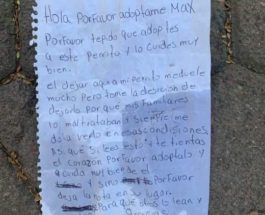 Hola porfavor adoptame Max
Porfavor te pido que adoptes
a este Perrito y lo Cuides muy
bien.
el dejar aqui a mi perrito me duele
mucho Pero tome la desicion de
dejarlo Por que mis familiares
lo maltrataban y siempre me
dolia verlo en esas condiciones.
Asi que Si lees esto y te tientas
el Corazon porfavor adoptalo y
Cuida muy bien de el
y sino Porfavor
deja la nota en su lugar.
Para que otros lo lean y